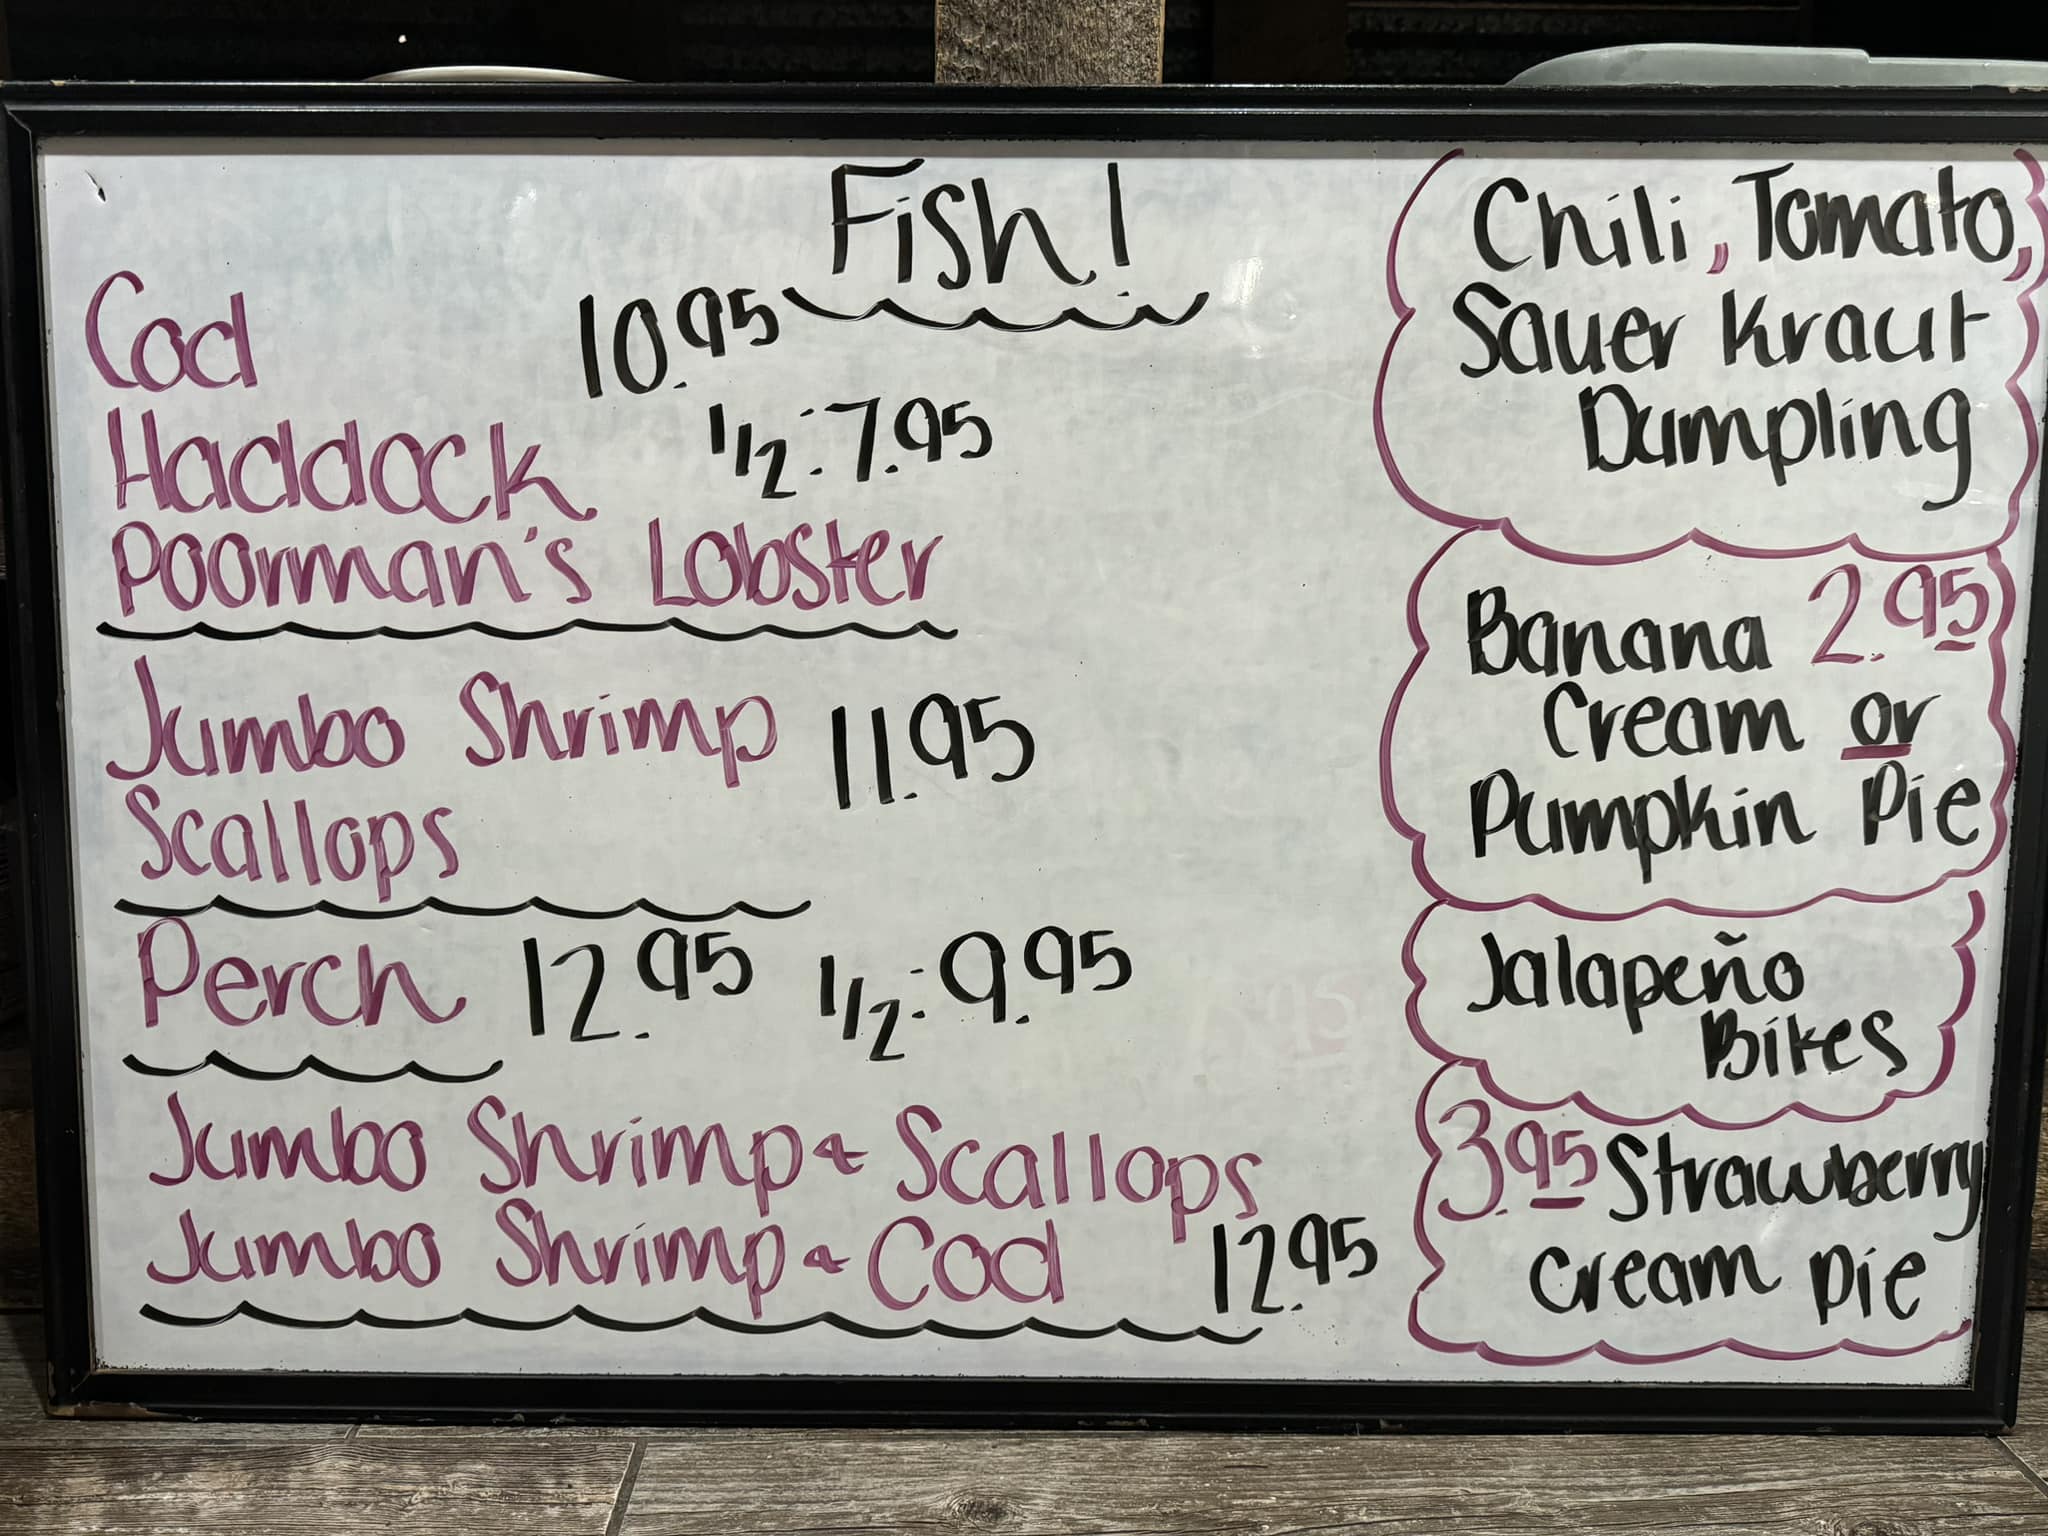 Fish!
Cod 10.95
Haddock 1/2: 7.95
Poorman's Lobster
Jumbo Shrimp 11.95
Scallops
Perch 12.95 1/2: 9.95
Jumbo Shrimp & Scallops
Jumbo Shrimp & Cod 12.95
Chili, Tomato,
Sauer Kraut
Dumpling
Banana 2.95
Cream or
Pumpkin Pie
Jalapeño
Bikes
3.95 Strawberry
Cream Pie